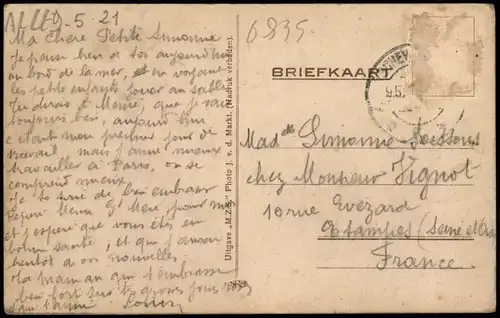 9-5-21
Ma chère Petite Simonne
Je pense bien a toi aujourd'hui
au bord de la mer, en voyant
les petits enfants jouer au sable
Tu diras à Mémé, que je vais
toujours bien, aujourd'hui
c'était mon premier jour de
travail mais j'aime mieux
travailler à Paris, on se
comprend mieux.
Je te de bien embrasser
Mère, pour moi
et j'espère que vous êtes en
bonne santé, et que j'aurai
bientôt de vos nouvelles,
Ta maman qui t'embrasse
bien fort sur tes grosses joues
t'aime Louise
6835
BRIEFKAART
9.5.
Uitgave „M.Z.B." Photo J. v. d. Markt. (Nadruk verboden).
Madlle Simonne Soissons
chez Monsieur Vignot
10 rue Evezard
Etampes (Seine et Oise)
France